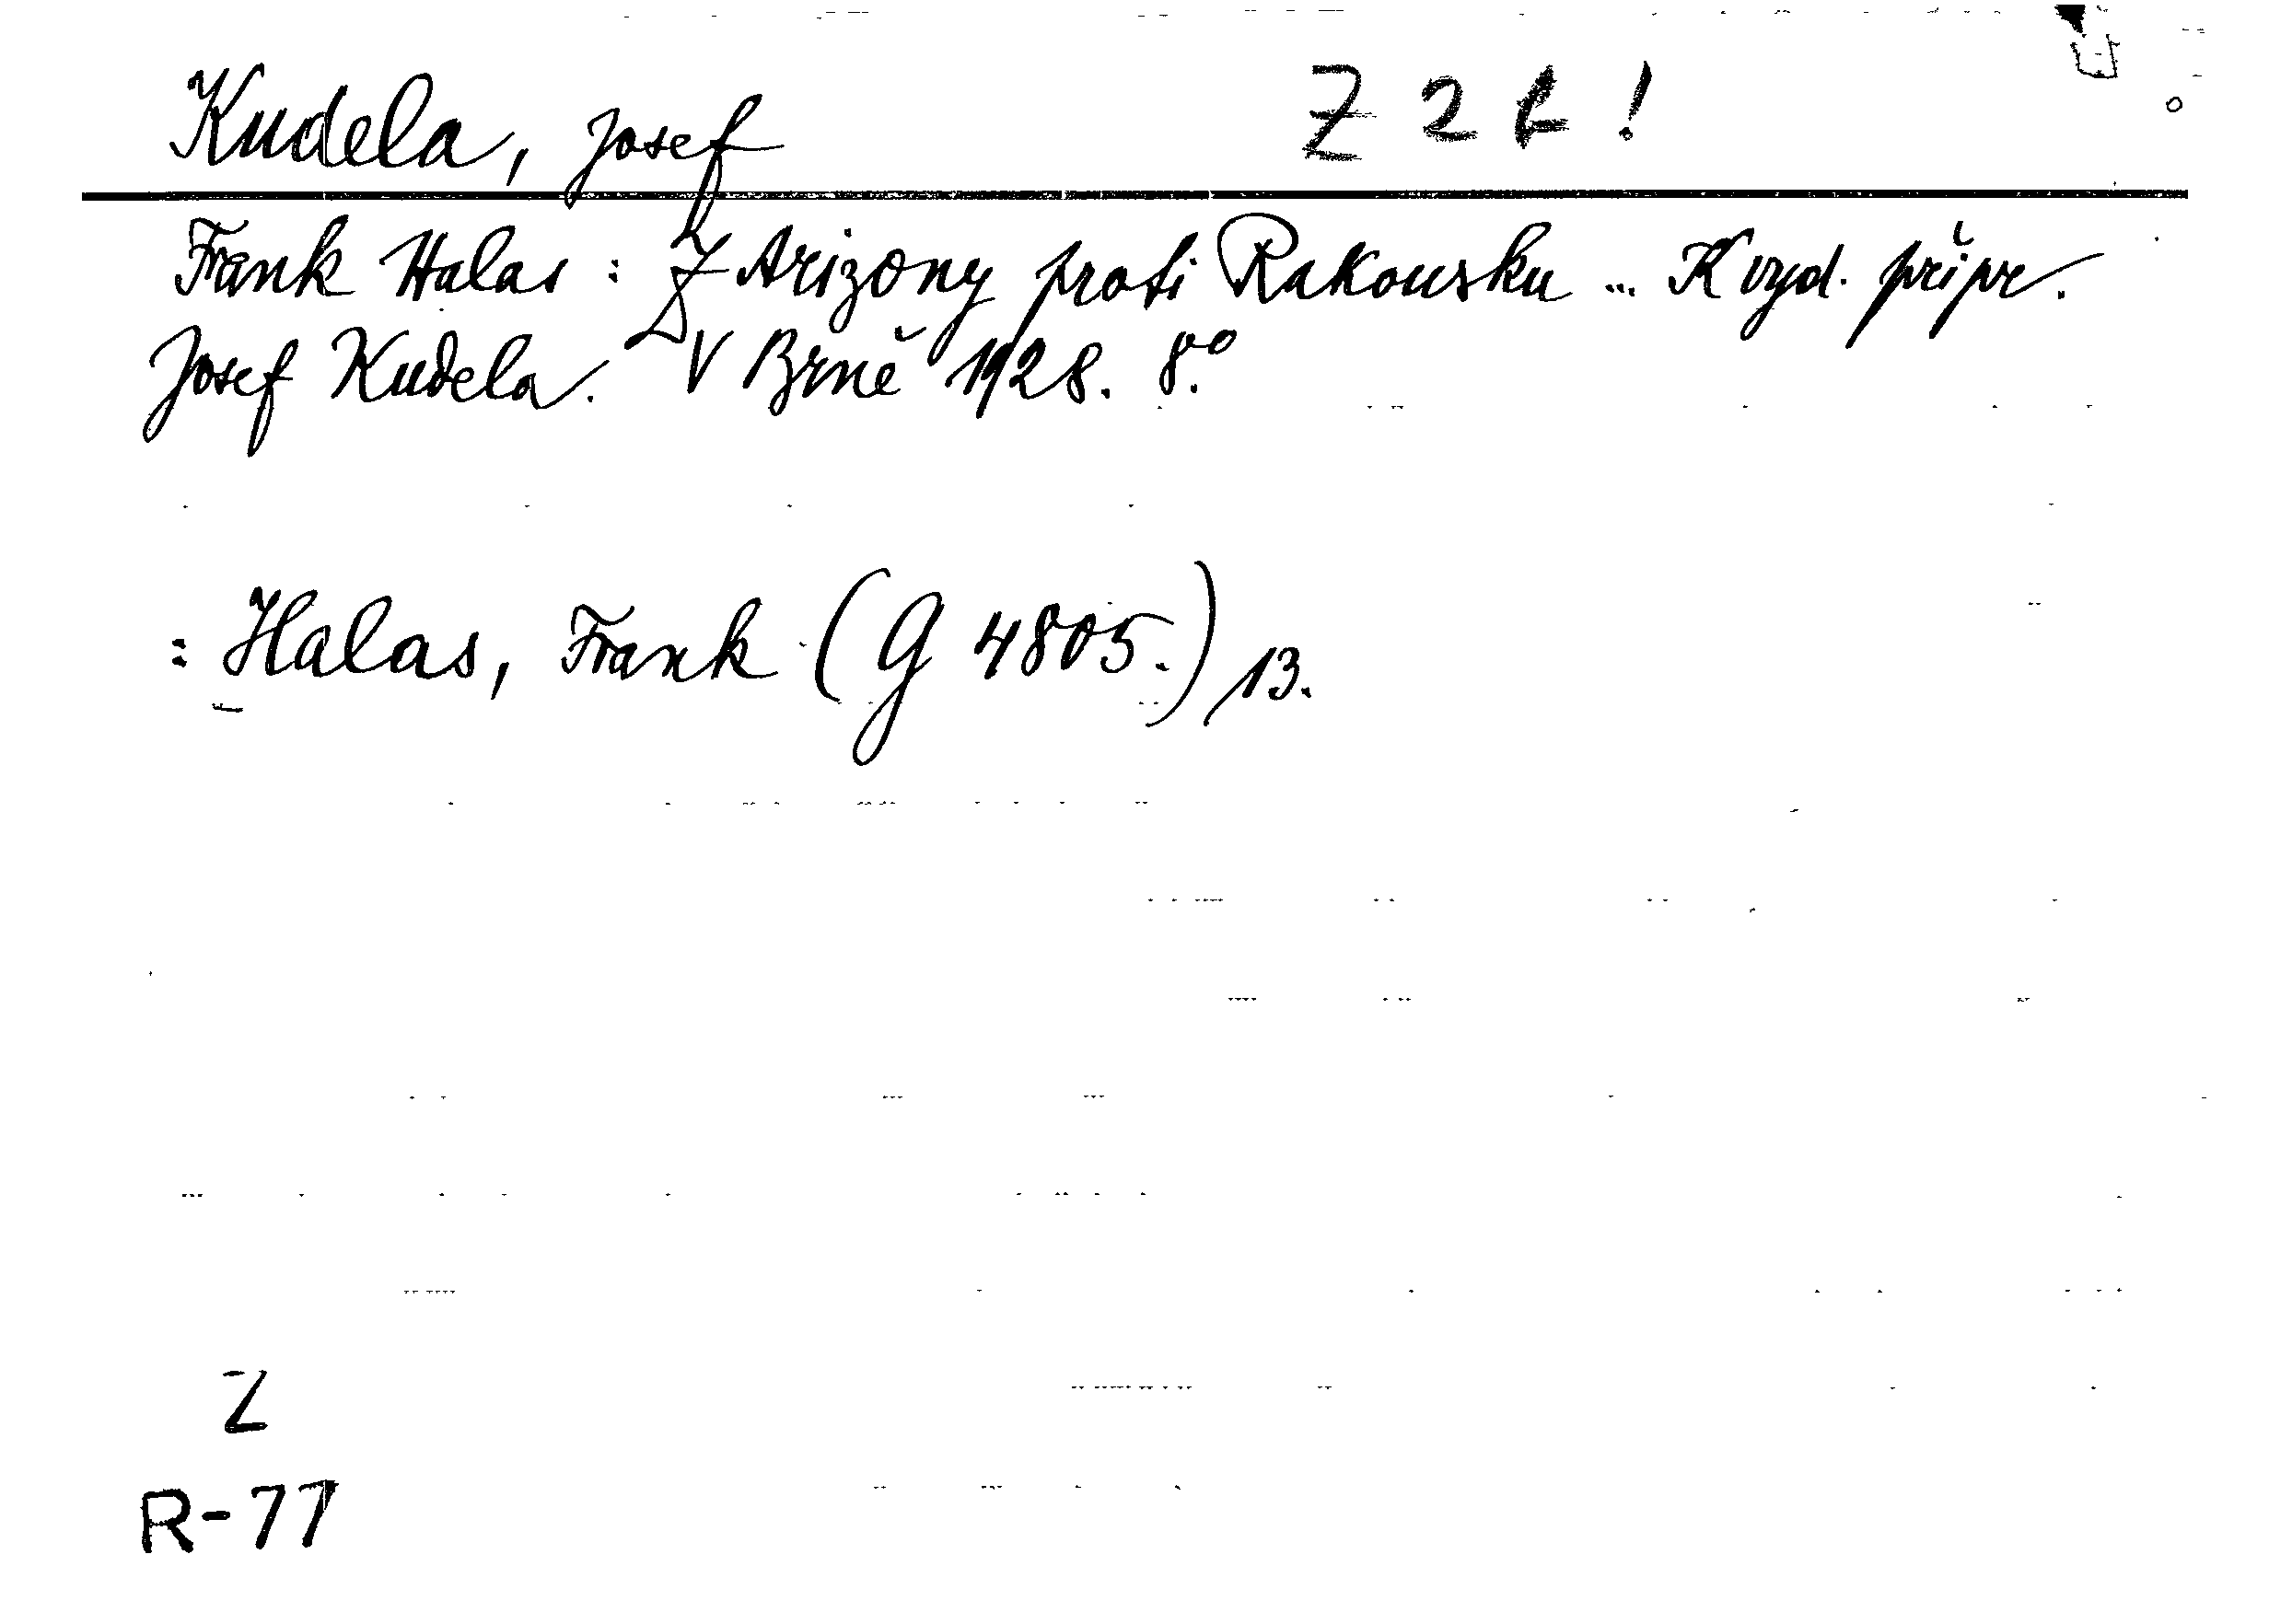 Kudela, Josef Z 2 k !
Frank Halas : Z Arizony proti Rakousku ... K vyd. připr.
Josef Kudela. V Brně 1928. 8.°
: Halas, Frank (G 4805.) 13.
Z
R-77